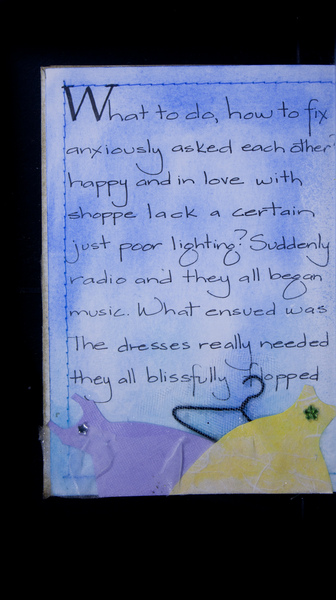 What to do, how to fix
anxiously asked each other
happy and in love with
shoppe lack a certain
just poor lighting? Suddenly
radio and they all began
music. What ensued was
The dresses really needed
they all blissfully flopped